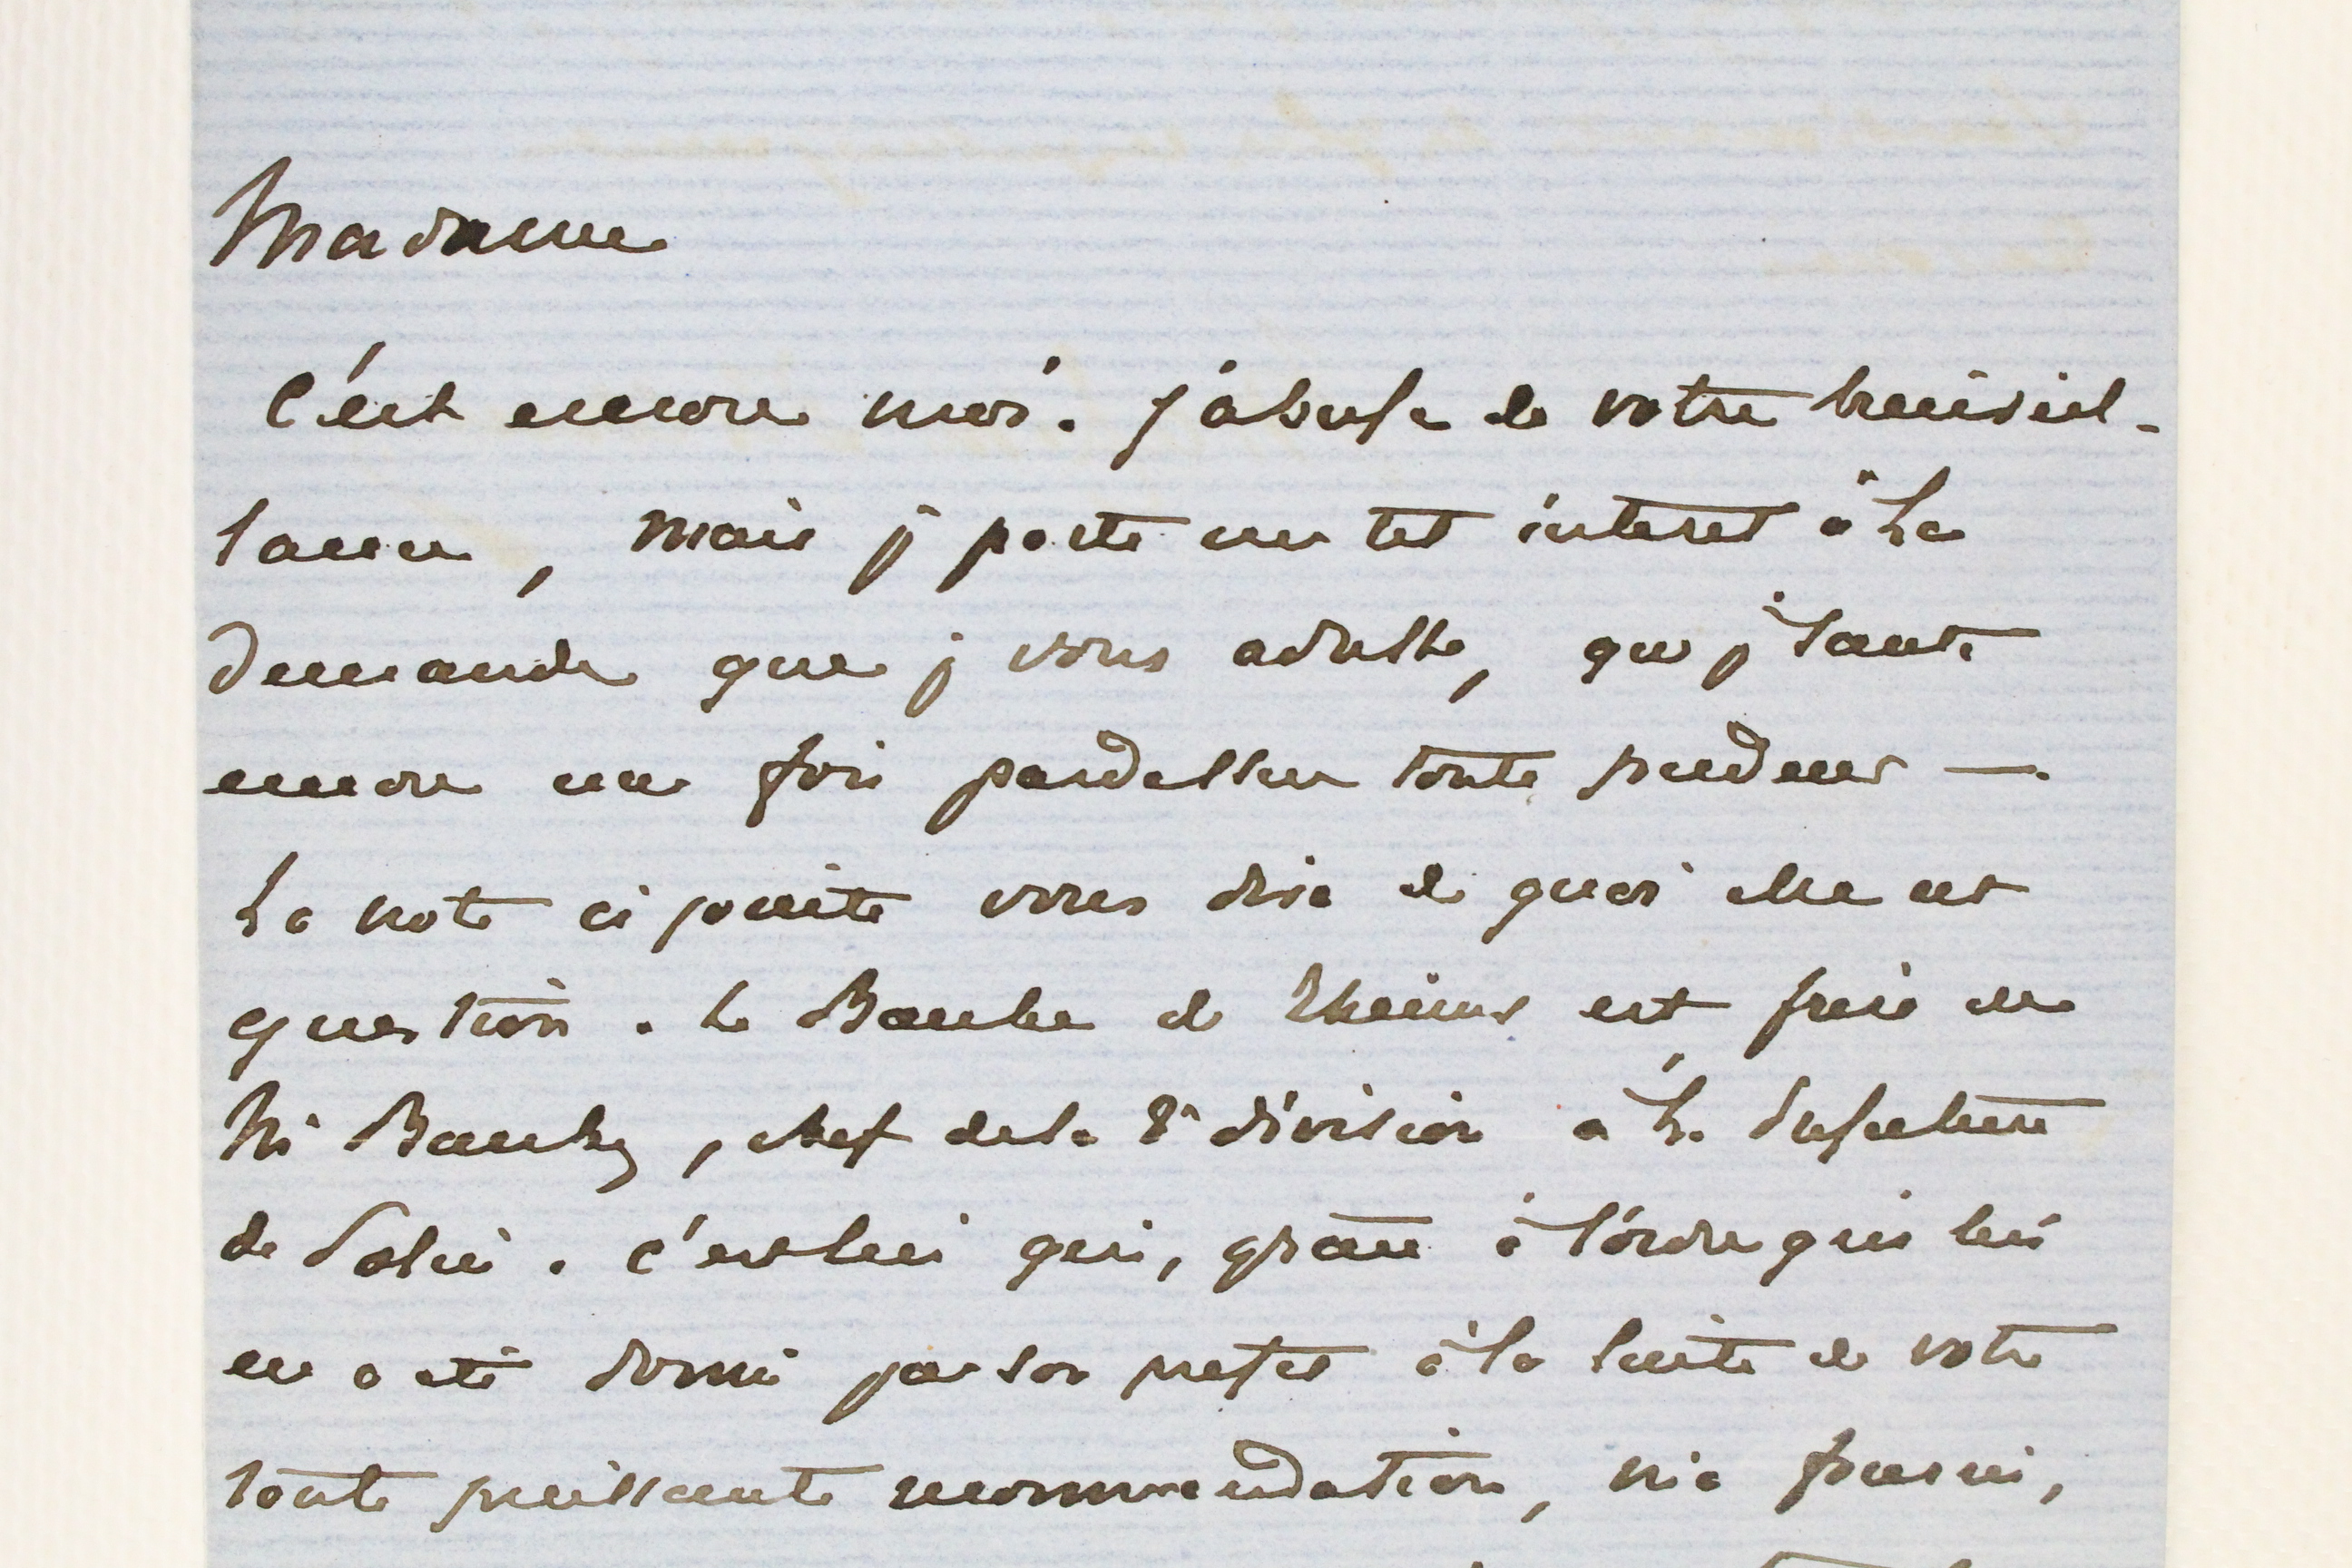 Madame
C'est encore moi. J'abuse de votre bienveil-
lance, mais j porte un tel interet à la
demande que j vous adresse, que j saute
encore une fois pardessus toute pudeur —.
La note ci jointe vous dira de quoi elle est
question. Le Bauche de Rheims est frère de
Mr Bauchez, chef de la 2e division à la Prefecture
de Police. c'est lui qui, grace à l'ordre qui lui
en a été donné par son prefet à la suite de votre
toute puissante recommendation, m'a fourni,